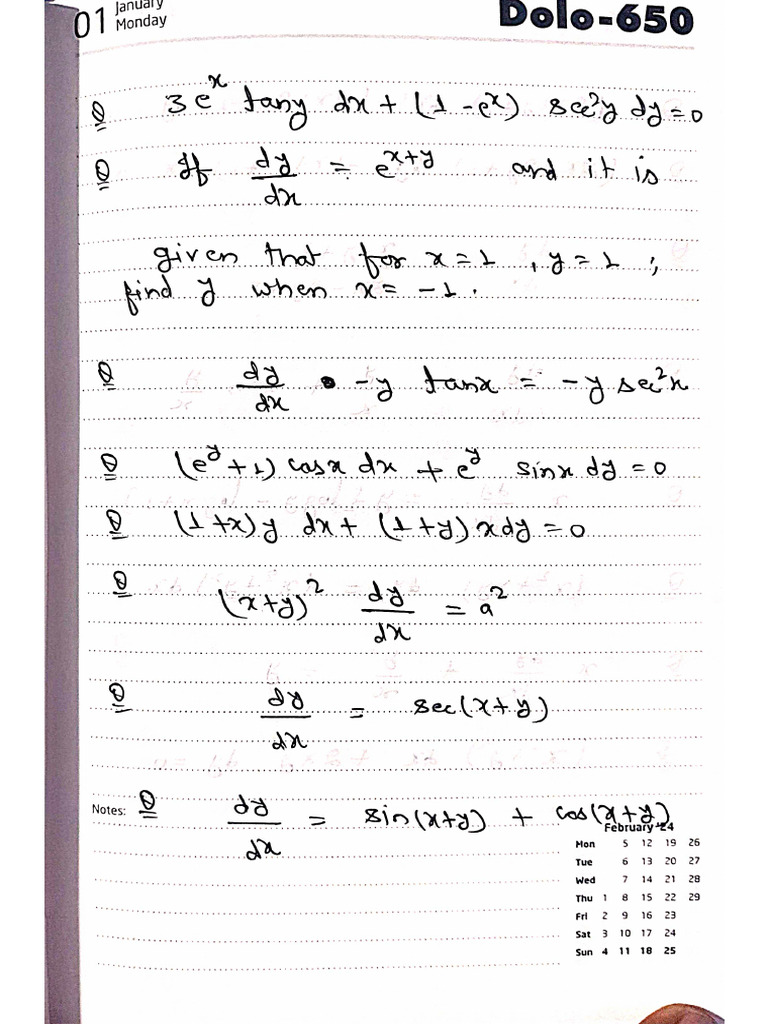 01 January
Monday
Dolo-650
Q 3e^x tany dx + (1 - e^x) sec²y dy = 0
Q If dy/dx = e^(x+y) and it is
given that for x = 1, y = 1 ;
find y when x = -1.
Q dy/dx - y tanx = -y sec²x
Q (e^y + 1) cosx dx + e^y sinx dy = 0
Q (1 + x) y dx + (1 + y) x dy = 0
Q (x+y)² dy/dx = a²
Q dy/dx = sec(x+y)
Notes: Q dy/dx = sin(x+y) + cos(x+y)
February '24
Mon 5 12 19 26
Tue 6 13 20 27
Wed 7 14 21 28
Thu 1 8 15 22 29
Fri 2 9 16 23
Sat 3 10 17 24
Sun 4 11 18 25